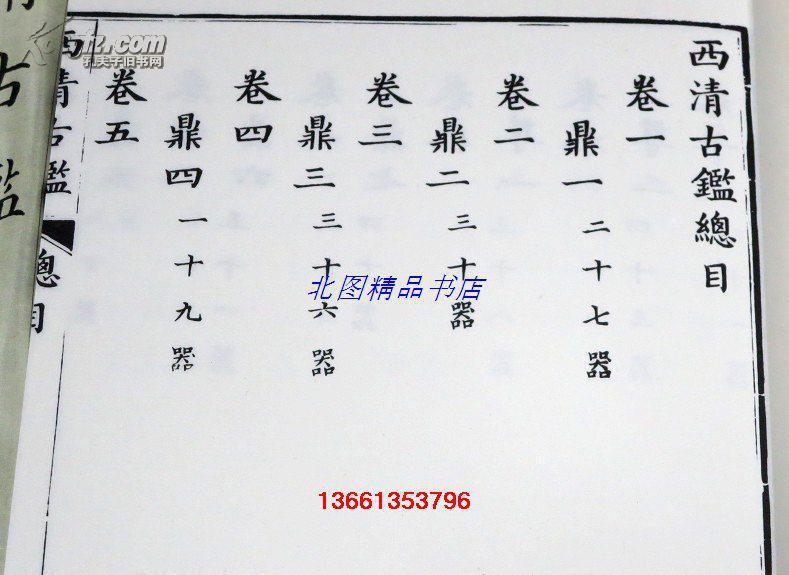 西清古鑑總目
卷一
鼎一 二十七器
卷二
鼎二 三十器
卷三
鼎三 三十六器
卷四
鼎四 一十九器
卷五
西清古鑑
總目
古鑑
孔夫子旧书网
北图精品书店
13661353796